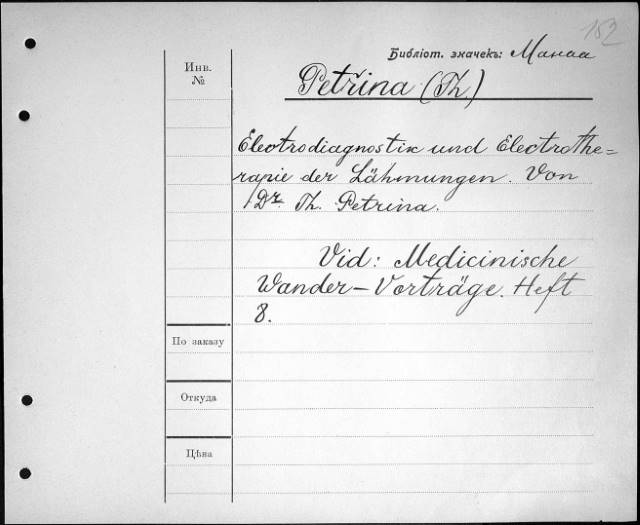 152
Библіот. значекъ: Манаа
Инв.
№
Petřina (Th)
Electrodiagnostik und Electrothe=
rapie der Lähmungen. Von
Dr. Th. Petřina.
Vid: Medicinische
Wander-Vorträge. Heft
8.
По заказу
Откуда
Цѣна